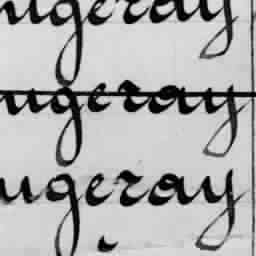 ugeray
ugeray
ugeray